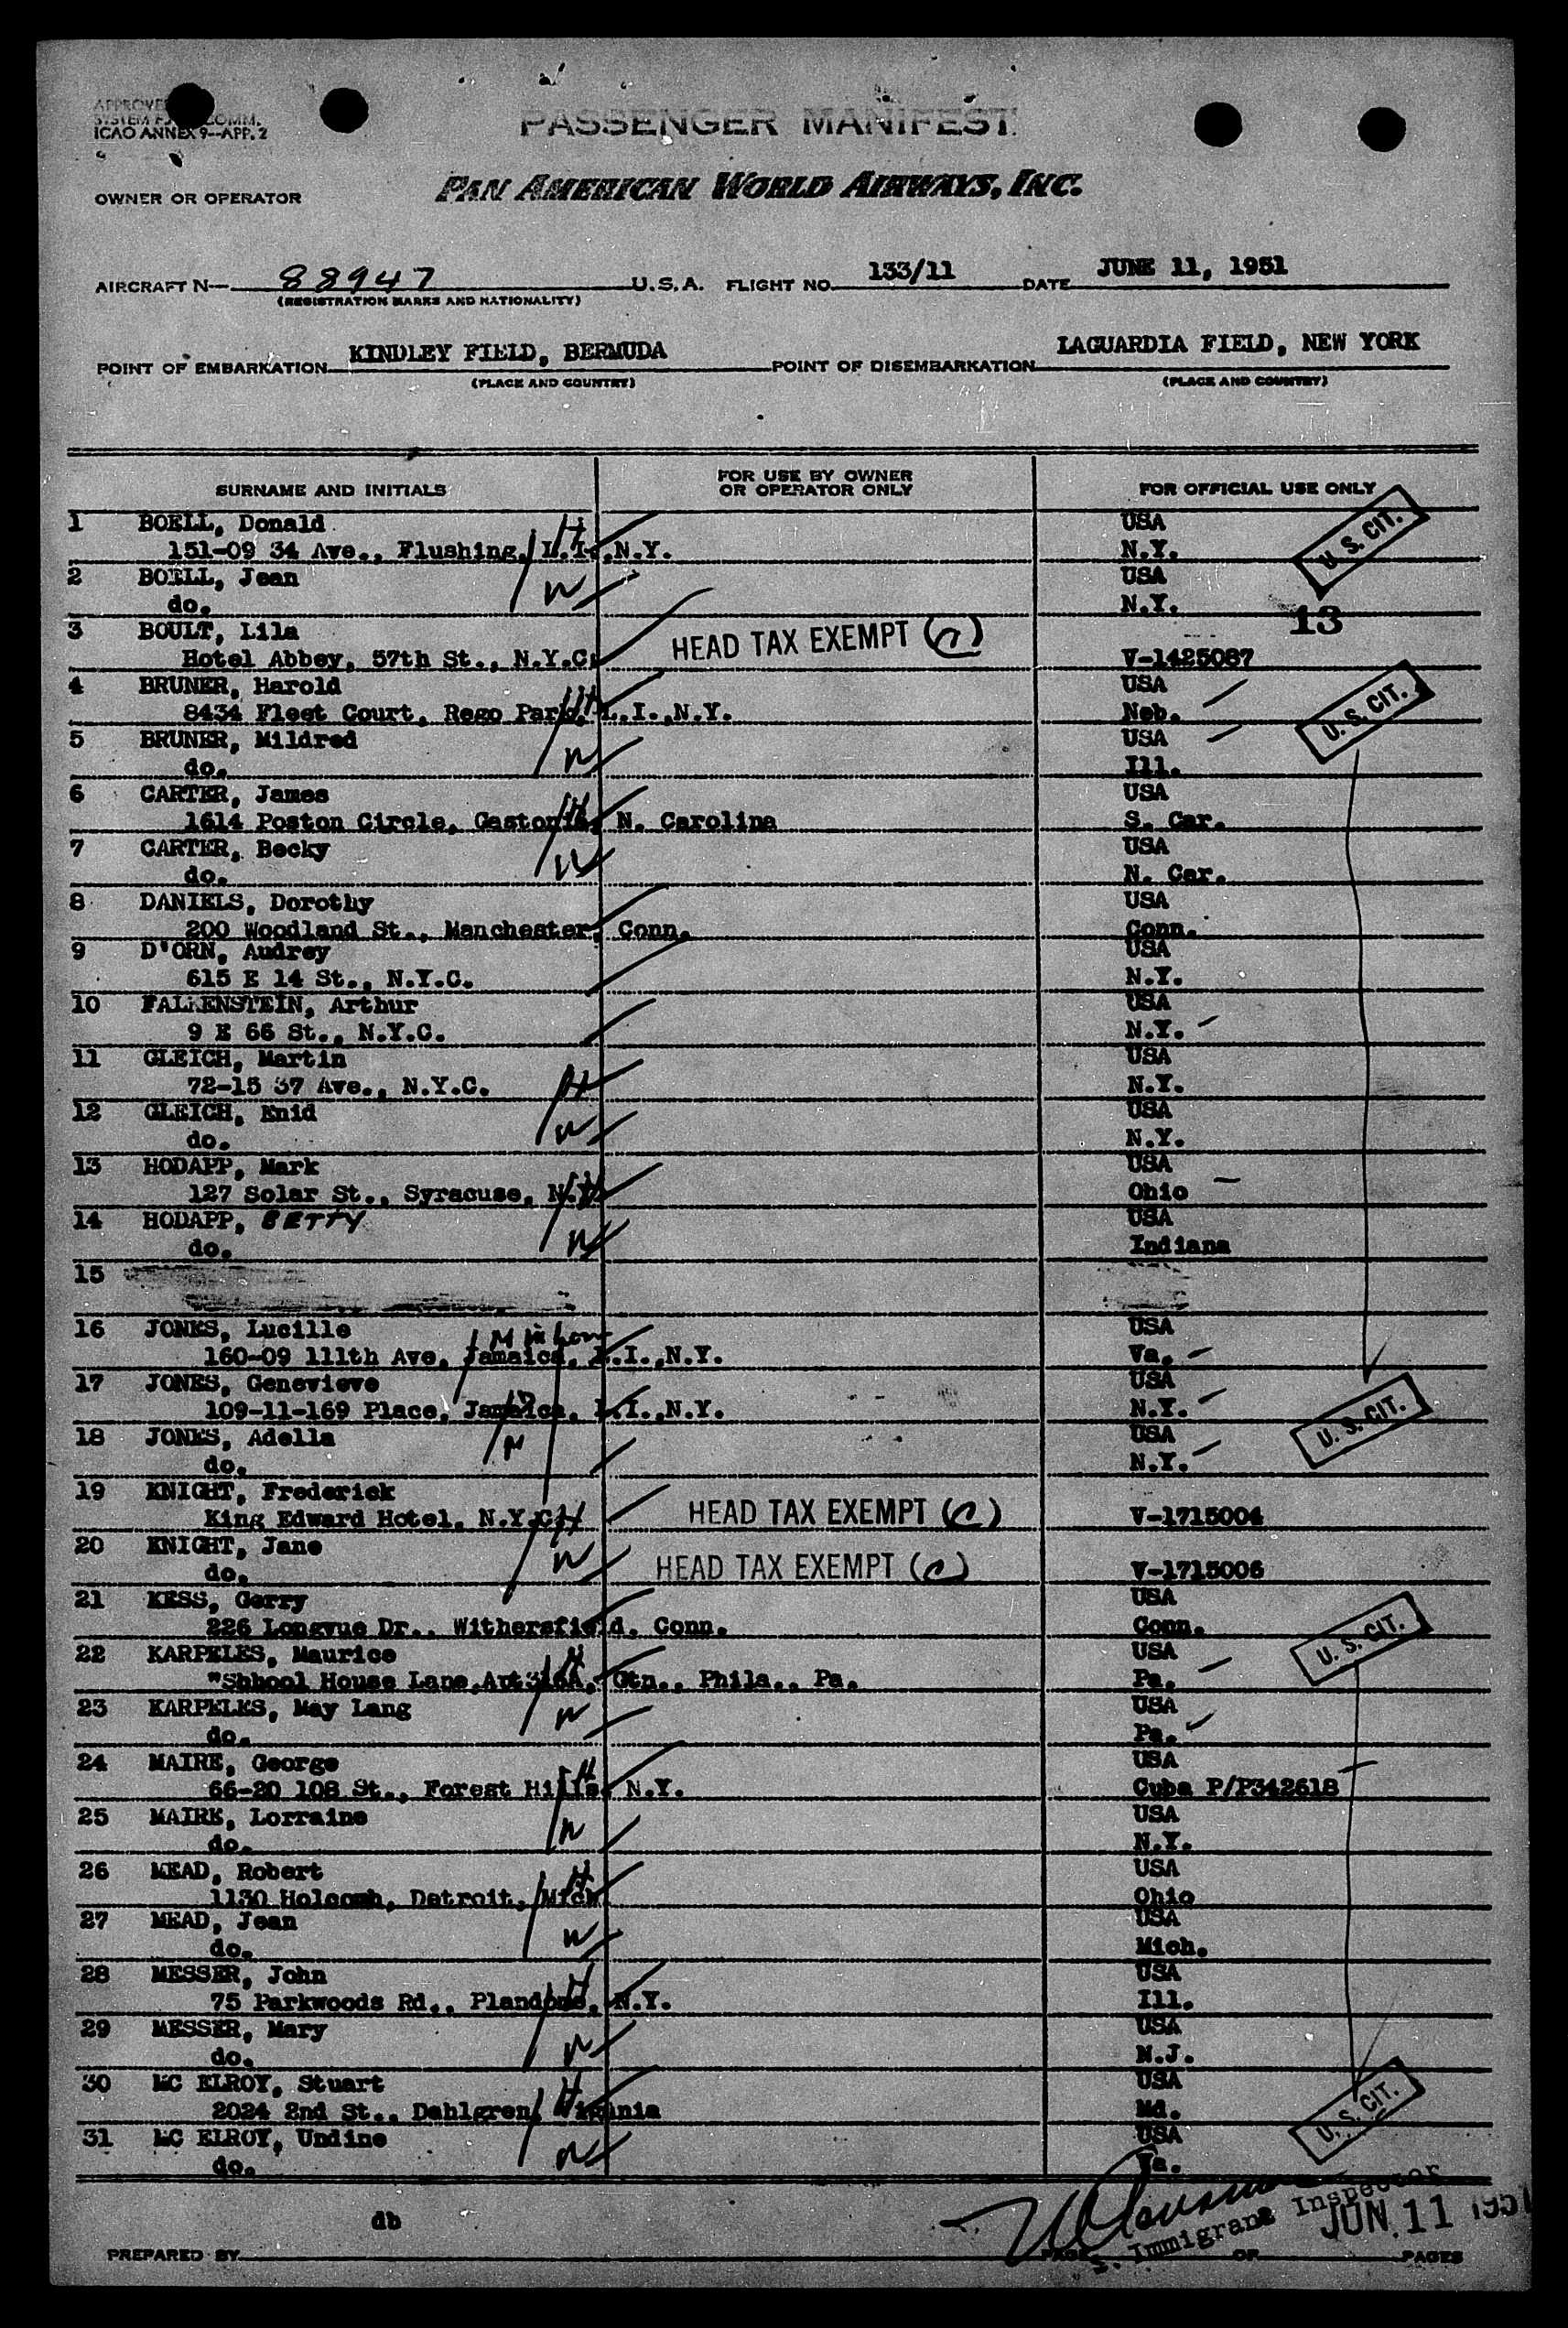 ICAO ANNEX 9--APP. 2
PASSENGER MANIFEST
OWNER OR OPERATOR PAN AMERICAN WORLD AIRWAYS, INC.
AIRCRAFT N— 88947 U.S.A. FLIGHT NO. 133/11 DATE JUNE 11, 1951
(REGISTRATION MARKS AND NATIONALITY)
POINT OF EMBARKATION KINDLEY FIELD, BERMUDA POINT OF DISEMBARKATION LAGUARDIA FIELD, NEW YORK
(PLACE AND COUNTRY) (PLACE AND COUNTRY)
SURNAME AND INITIALS FOR USE BY OWNER OR OPERATOR ONLY FOR OFFICIAL USE ONLY
1 BOELL, Donald H USA U. S. CIT.
151-09 34 Ave., Flushing, L.I.,N.Y. N.Y.
2 BOELL, Jean W USA
do. N.Y. 13
3 BOULT, Lila HEAD TAX EXEMPT
Hotel Abbey, 57th St., N.Y.C. V-1425087
4 BRUNER, Harold H USA U. S. CIT.
8434 Fleet Court, Rego Park, L.I.,N.Y. Neb.
5 BRUNER, Mildred W USA
do. Ill.
6 CARTER, James H USA
1614 Poston Circle, Gastonia, N. Carolina S. Car.
7 CARTER, Becky W USA
do. N. Car.
8 DANIELS, Dorothy USA
200 Woodland St., Manchester, Conn. Conn.
9 D'ORN, Audrey USA
615 E 14 St., N.Y.C. N.Y.
10 FALKENSTEIN, Arthur USA
9 E 66 St., N.Y.C. N.Y.
11 GLEICH, Martin H USA
72-15 37 Ave., N.Y.C. N.Y.
12 GLEICH, Enid W USA
do. N.Y.
13 HODAPP, Mark H USA
127 Solar St., Syracuse, N.Y. Ohio
14 HODAPP, BETTY W USA
do. Indiana
15
16 JONES, Lucille M in law USA
160-09 111th Ave, Jamaica, L.I.,N.Y. Va.
17 JONES, Genevieve USA U. S. CIT.
109-11-169 Place, Jamaica, L.I.,N.Y. N.Y.
18 JONES, Adella USA
do. N.Y.
19 KNIGHT, Frederick HEAD TAX EXEMPT
King Edward Hotel, N.Y.C. H V-1715004
20 KNIGHT, Jane W HEAD TAX EXEMPT
do. V-1715006
21 KESS, Gerry USA U. S. CIT.
226 Longvue Dr., Withersfield, Conn. Conn.
22 KARPELES, Maurice H USA
"Shhool House Lane,Apt316A, Gtn., Phila., Pa. Pa.
23 KARPELES, May Lang W USA
do. Pa.
24 MAIRE, George H USA
66-20 108 St., Forest Hills, N.Y. Cuba P/P342618
25 MAIRE, Lorraine W USA
do. N.Y.
26 MEAD, Robert H USA
1130 Holcomb, Detroit, Mich. Ohio
27 MEAD, Jean W USA
do. Mich.
28 MESSER, John H USA
75 Parkwoods Rd., Plandome, N.Y. Ill.
29 MESSER, Mary W USA
do. N.J.
30 MC ELROY, Stuart H USA U. S. CIT.
2024 2nd St., Dahlgren, Virginia Md.
31 MC ELROY, Undine W USA
do. Va.
db Immigrant Inspector JUN 11 1951
PREPARED BY PAGE OF PAGES